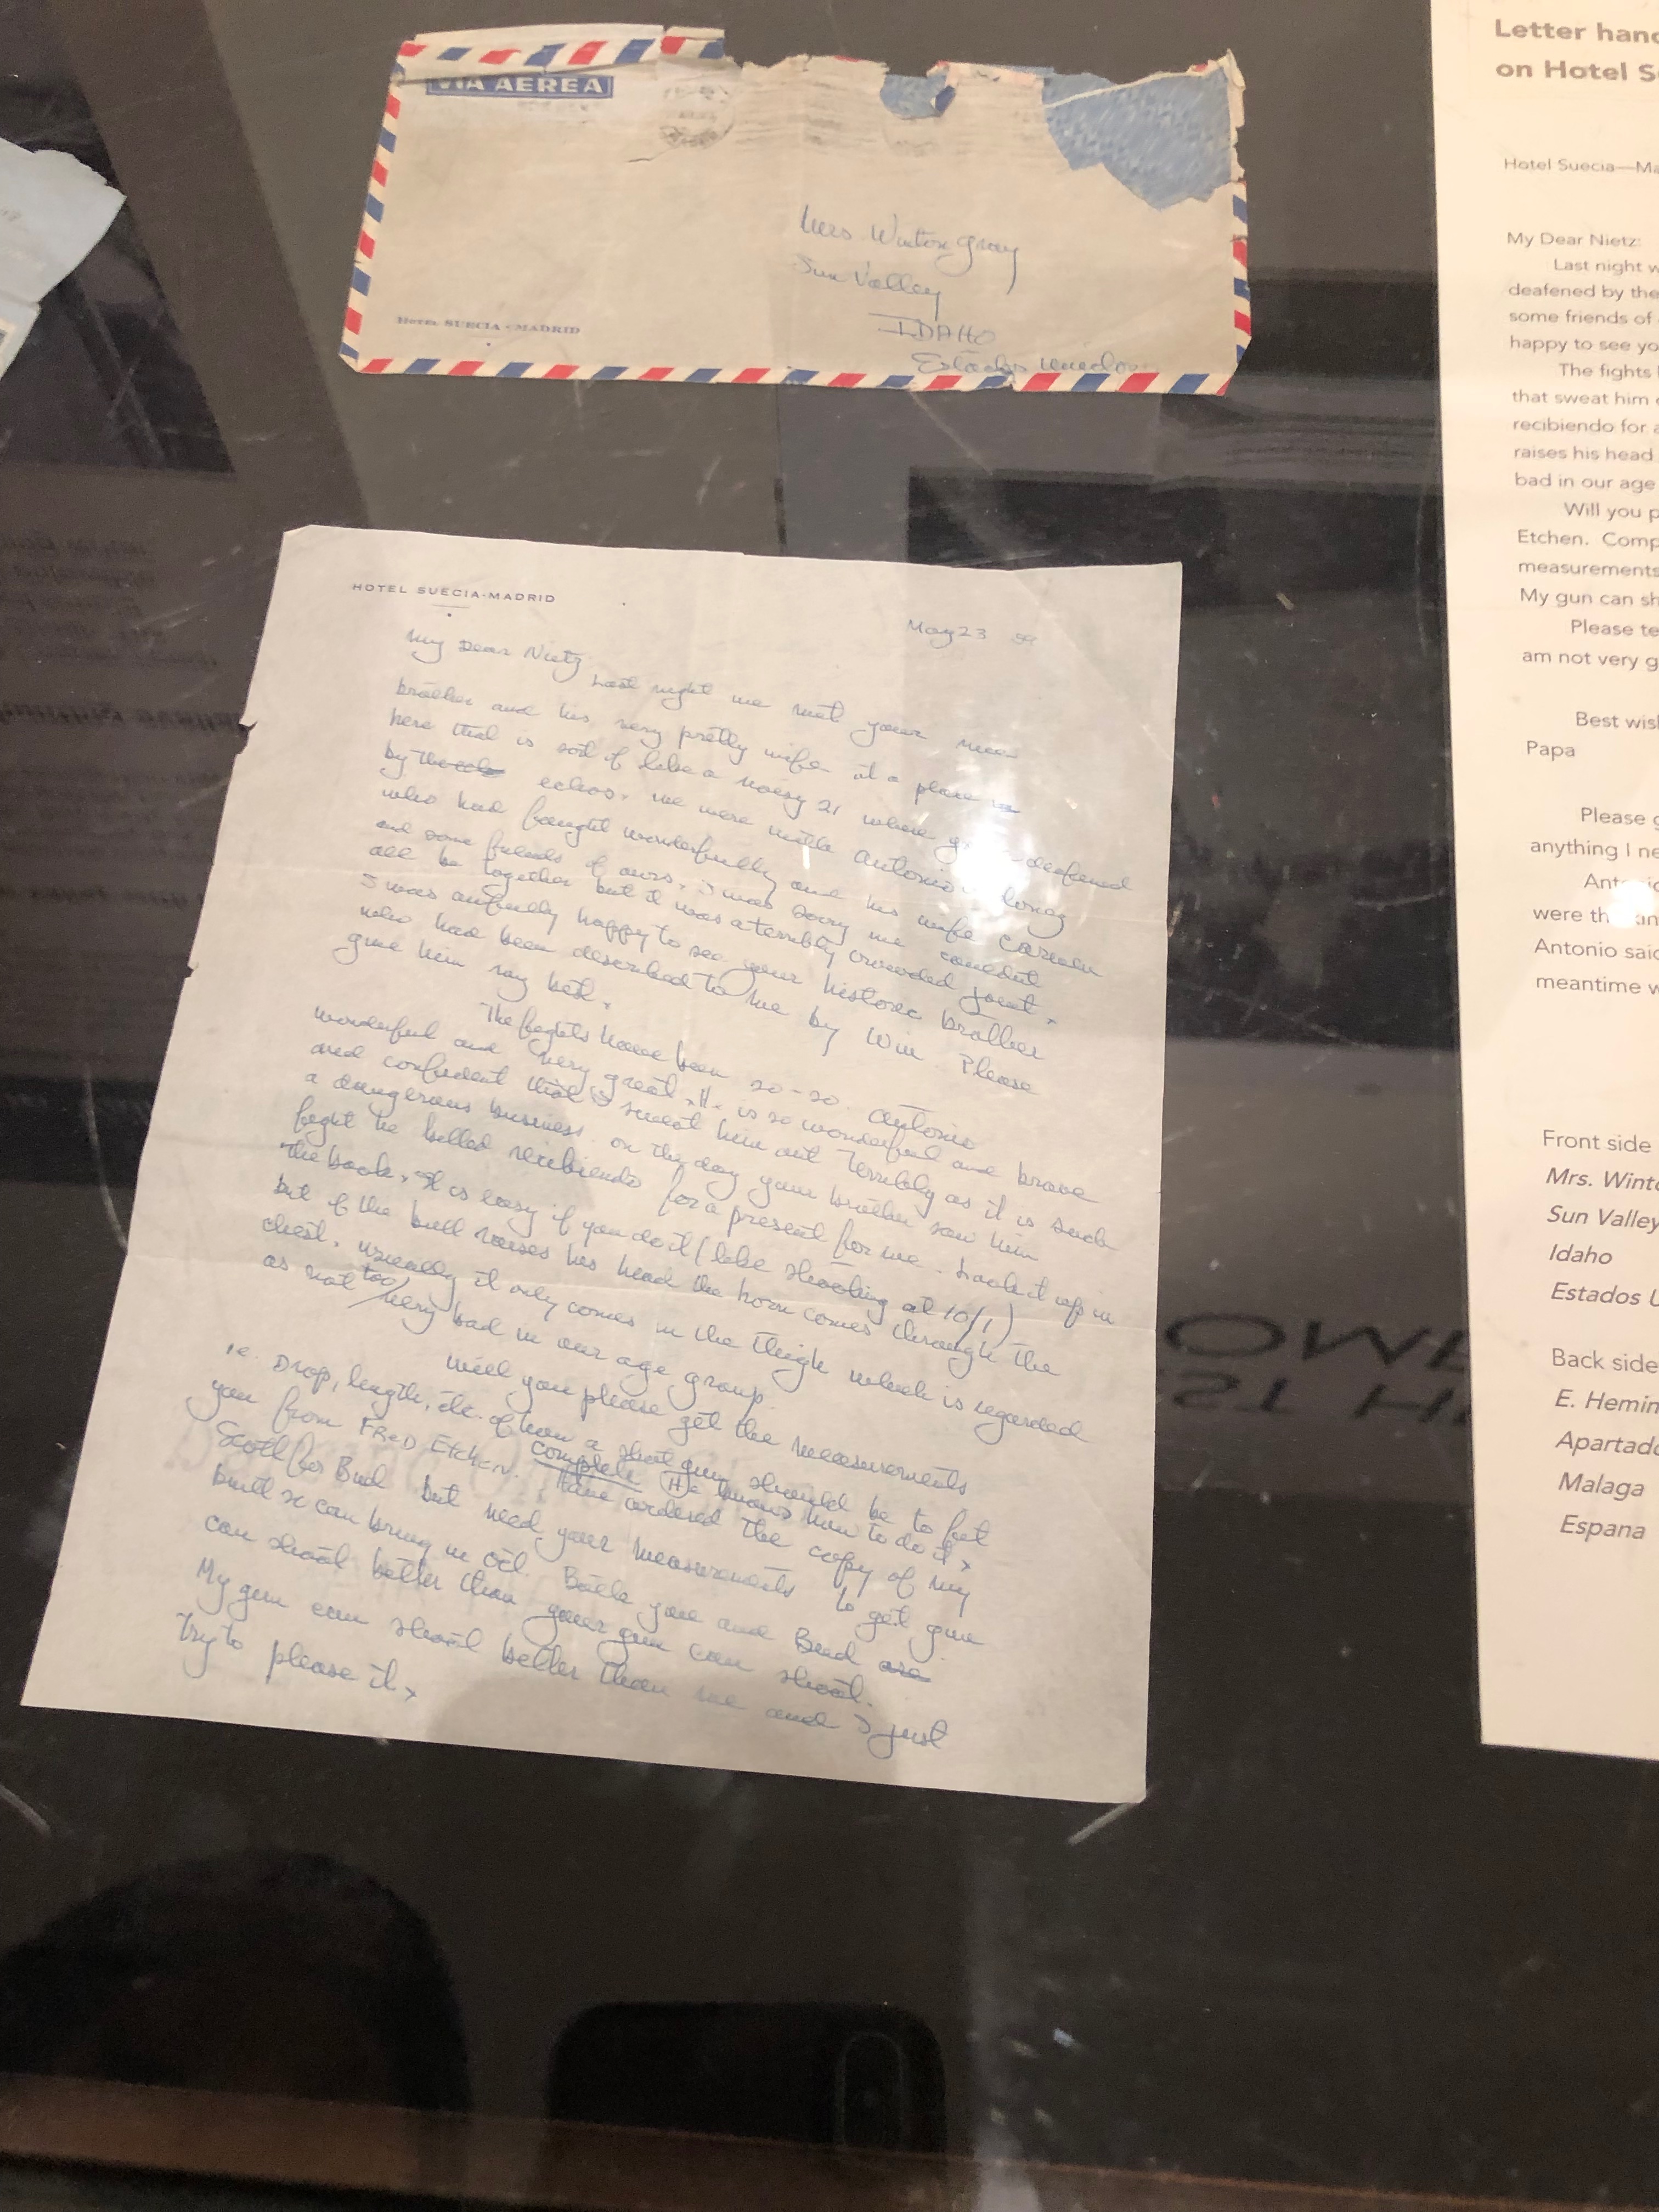 VIA AEREA
Mrs Winton Gray
Sun Valley
IDAHO
Estados Unidos
HOTEL SUECIA-MADRID
HOTEL SUECIA-MADRID
May 23 59
My Dear Nietz
Last night we met your
brother and his very pretty wife at a place
here that is sort of like a noisy 21 where deafened
by the echos. We were with Antonio
who had fought wonderfully and his wife Carmen
and some friends of ours. I was sorry we couldnt
all be together but it was a terribly crowded joint.
I was awfully happy to see your historic brother
who had been described to me by Win. Please
give him my best.
The fights have been so-so. Antonio
wonderful and very great. He is so wonderful and brave
and confident that I sweat him out terribly as it is such
a dangerous business. On the day your brother saw him
fight he killed recibiendo for a present for me. Look it up in
the book. It is easy if you do it (like shooting at 10/1)
but if the bull raises his head the horn comes through the
chest. Usually it only comes in the thigh which is regarded
as not too very bad in our age group.
Will you please get the measurements
i.e. Drop, length, etc. of how a shot gun should be to fit
you from FRED Etchen. Complete. He knows how to do it.
Have ordered the copy of my
Scott for Bud but need your measurements to get gun
built so can bring in Oct. Both you and Bud are
can shoot better than your gun can shoot.
My gun can shoot better than me and I just
try to please it.
Letter hand
on Hotel S
Hotel Suecia—Ma
My Dear Nietz:
Last night w
deafened by the
some friends of
happy to see yo
The fights
that sweat him
recibiendo for a
raises his head
bad in our age
Will you p
Etchen. Comp
measurements
My gun can sh
Please te
am not very g
Best wis
Papa
Please g
anything I ne
were th
Antonio said
meantime w
Front side
Mrs. Winto
Sun Valley
Idaho
Estados U
Back side
E. Hemin
Apartado
Malaga
Espana